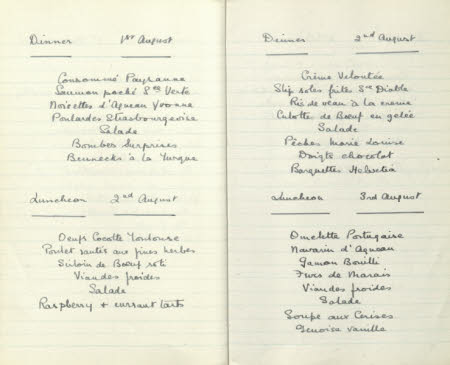 Dinner 1st August
Consommé Paysanne
Saumon poché Sce Verte
Noisettes d'Agneau Yvonne
Poulardes Strasbourgeoise
Salade
Bombes Surprises
Beurrecks à la Turque
Luncheon 2nd August
Oeufs Cocotte Toulouse
Poulet sauté aux fines herbes
Sirloin de Boeuf rôti
Viandes froides
Salade
Raspberry + currant tarts
Dinner 2nd August
Crème Veloutée
Slip soles frite Sce Diable
Ris de veau à la creme
Culotte de Boeuf en gelée
Salade
Pêches Marie Louise
Doigts chocolat
Barquettes Helvetia
Luncheon 3rd August
Omelette Portugaise
Navarin d'Agneau
Gamon Bouilli
Fèves de Marais
Viandes froides
Salade
Soupe aux Cerises
Genoise vanille